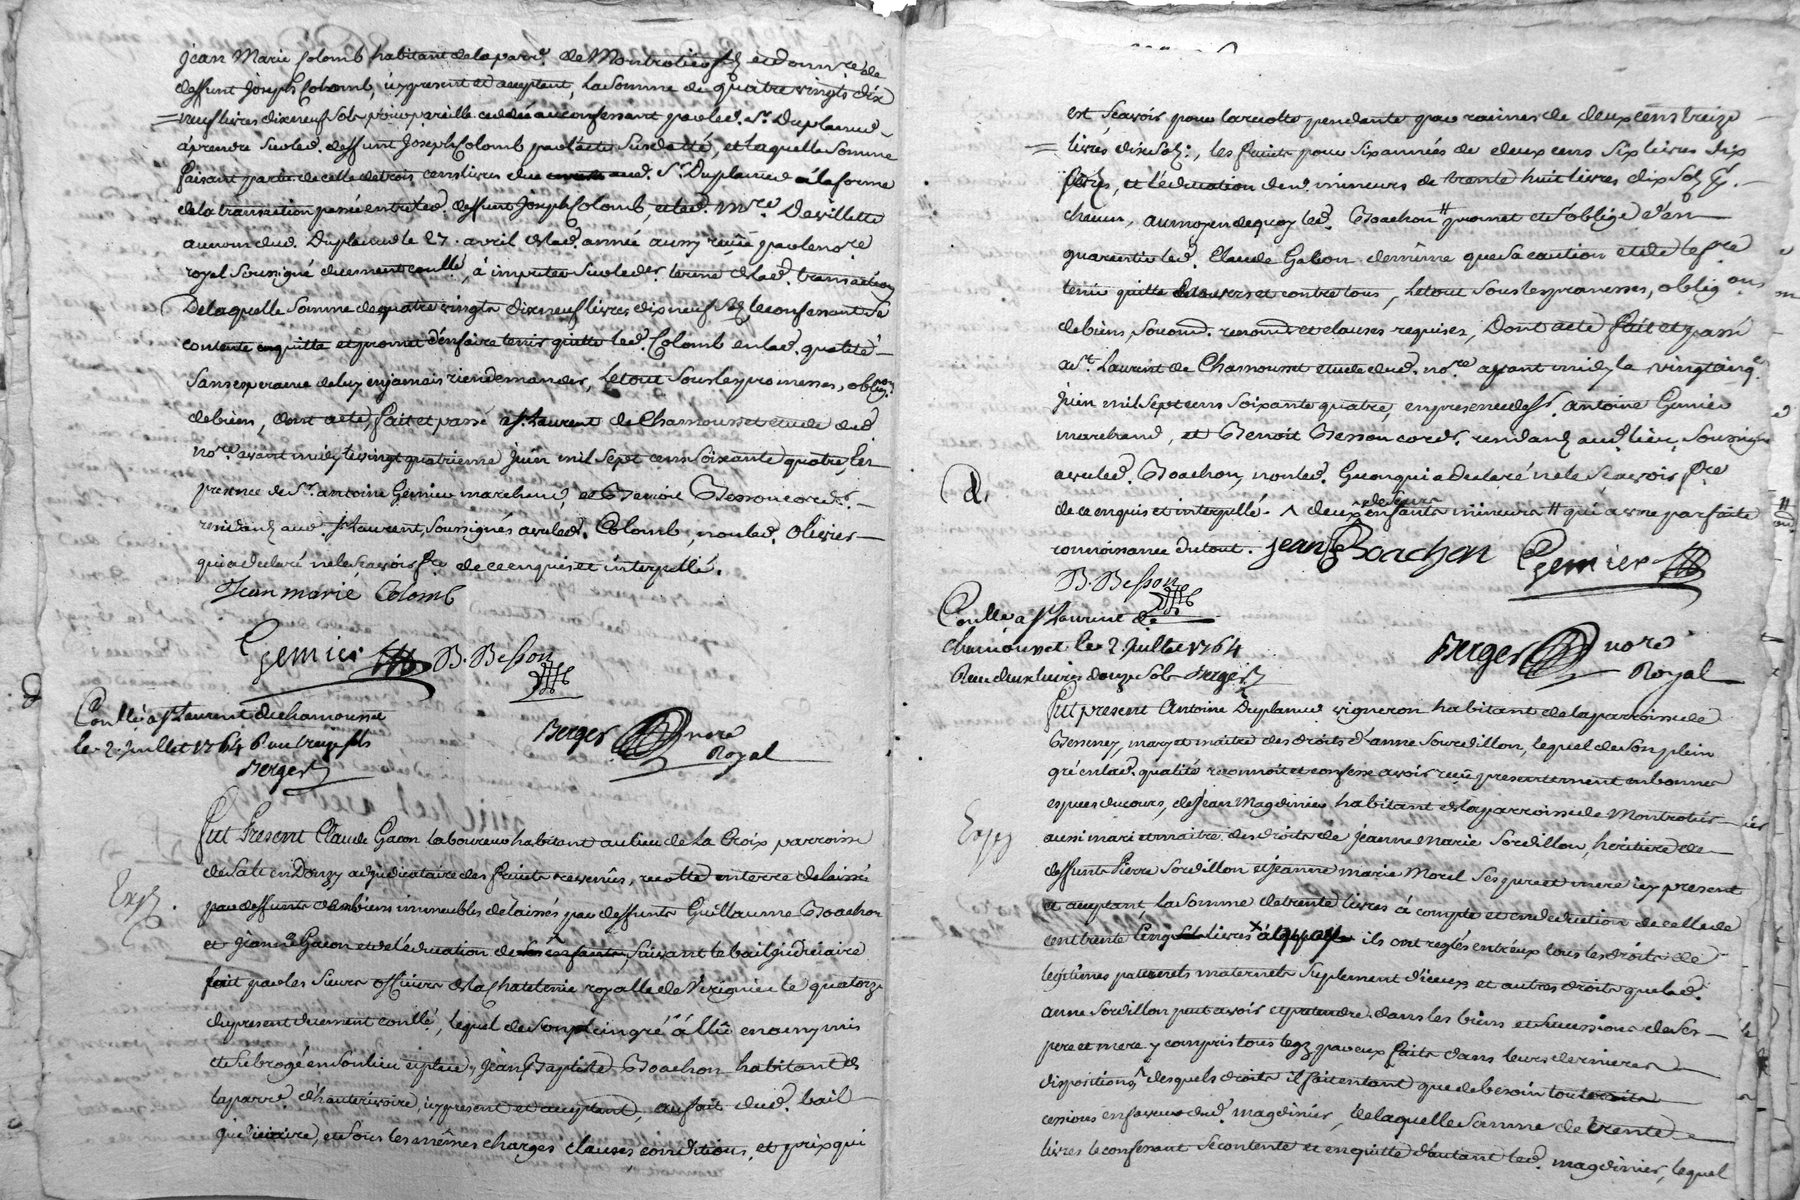 Jean Marie Colomb habitant de la parr.e de Montrotier et donnre de
deffunt Joseph Colomb, icy present et acceptant, la somme de quatre vingts dix
neuf livres dix neuf sols pour pareille cedée au confessant par led. Sr. Duplanud
à prendre sur led. deffunt Joseph Colomb par l'acte susdatté, et laquelle somme
faisant partie de celle de trois cens livres due aud. Sr. Duplanud à la forme
de la transaction passé entre led. deffunt Joseph Colomb, et led. Mre. Devillette
au nom dud. Duplanud le 27. avril de lad. année aussy reçuë par le nore
royal soussigné duement conllé, à imputer sur le der. terme de lad. transaction
De laquelle somme de quatre vingts dix neuf livres dix neuf sols, le confessant se
contente en quitte et promet d'en faire tenir quitte led. Colomb en lad. qualité
sans esperance de luy en jamais rien demander, le tout sous les promesses, oblig.ons
de biens, dont acte, fait et passé à St Laurent de Chamousset etude dud.
nore. avant midy le vingt quatrieme juin mil sept cens soixante quatre, en
presence de Sr. antoine Gemier marchand, et Benoit Besson cord.r
residans aud. St Laurent, soussignés avec led. Colomb, non led. Olivier
qui a declaré ne le scavoir fre de ce enquis et interpellé.
Jean marie Colomb
Gemier B. Besson
Berger nore
Royal
Conllé à St Laurent de chamousset
le 2. Juillet 1764 R. un treize sols
Berger
Fut Present Claude Gacon laboureur habitant au lieu de La Croix parroisse
de Salt en Donzy adjudicataire des fruits revenûs, recolte en terre delaissés
par deffunts des biens immeubles delaissés par deffunts Guillaume Boachon
et Jeanne Gacon et de l'éducation de ses enfants, suivant le bail judiciaire
fait par les sieurs officiers de la Chatelenie royalle de Virigneu le quatorze
du present duement conllé, lequel de son plein gré à llû en ou y mis
et subrogé en son lieu et place Jean Baptiste Boachon habitant de
la parr.e d'hauterivoire, icy present et acceptant, au fait dud. bail
judiciaire, et sous les mêmes charges clauses, conditions, et prix qui
est, scavoir pour la recolte pendante par racines de deux cens treize
livres dix sols, les fruits pour six années de deux cens six livres dix
sols, et l'éducation desd. mineurs de trente huit livres dix sols
chacun, au moyen de quoy led. Boachon promet et s'oblige d'en
garentir led. Claude Gacon de même que sa caution et de le fre
tenir quitte envers et contre tous, le tout sous les promesses, oblig.ons
de biens, soumon. renons. et clauses requises, Dont acte fait et passé
a St. Laurent de Chamousset etude dud. nore avant midy le vingt cinq.e
juin mil sept cens soixante quatre, en presence de Sr. antoine Gemier
marchand, et Benoit Besson cord.r residans aud. lieu, soussignés
avec led. Boachon, non led. Gacon qui a declaré ne le scavoir fre
de ce enquis et interpellé. deux enfants mineurs qui a une parfaite
connoissance du tout. Jean B Boachon Gemier
B. Besson
Conllé à St Laurent de
chamousset le 2. Juillet 1764
Reçu deux livres douze sols Berger
Berger nore
Royal
Fut present Antoine Duplanud vigneron habitant de la parroisse de
Bessenay, mary et maitre des droits d'anne Sordillon, lequel de son plein
gré en lad. qualité reconnoit et confesse avoir reçu presentement en bonnes
especes du cours, de Jean Magdinier habitant de la parroisse de Montrotier
aussi mari et maitre des droits de Jeanne Marie Sordillon, heritiere de
deffunts Pierre Sordillon et Jeanne marie Morel ses pere et mere icy present
et acceptant la somme de trente livres à compte et en deduction de celle de
cent trente cinq livres à laquelle ils ont reglés entr'eux tous les droits de
legitimes paternels maternels suplement d'iceux et autres droits que lad.
anne Sordillon peut avoir et pretendre dans les biens et successions de ses
pere et mere y compris tous legz par eux faits dans leurs dernieres
dispositions, desquels droits il fait entant que de besoin toutes
cessions en faveur dud. magdinier, de laquelle somme de trente
livres le confessant se contente et en quitte d'autant led. magdinier, lequel